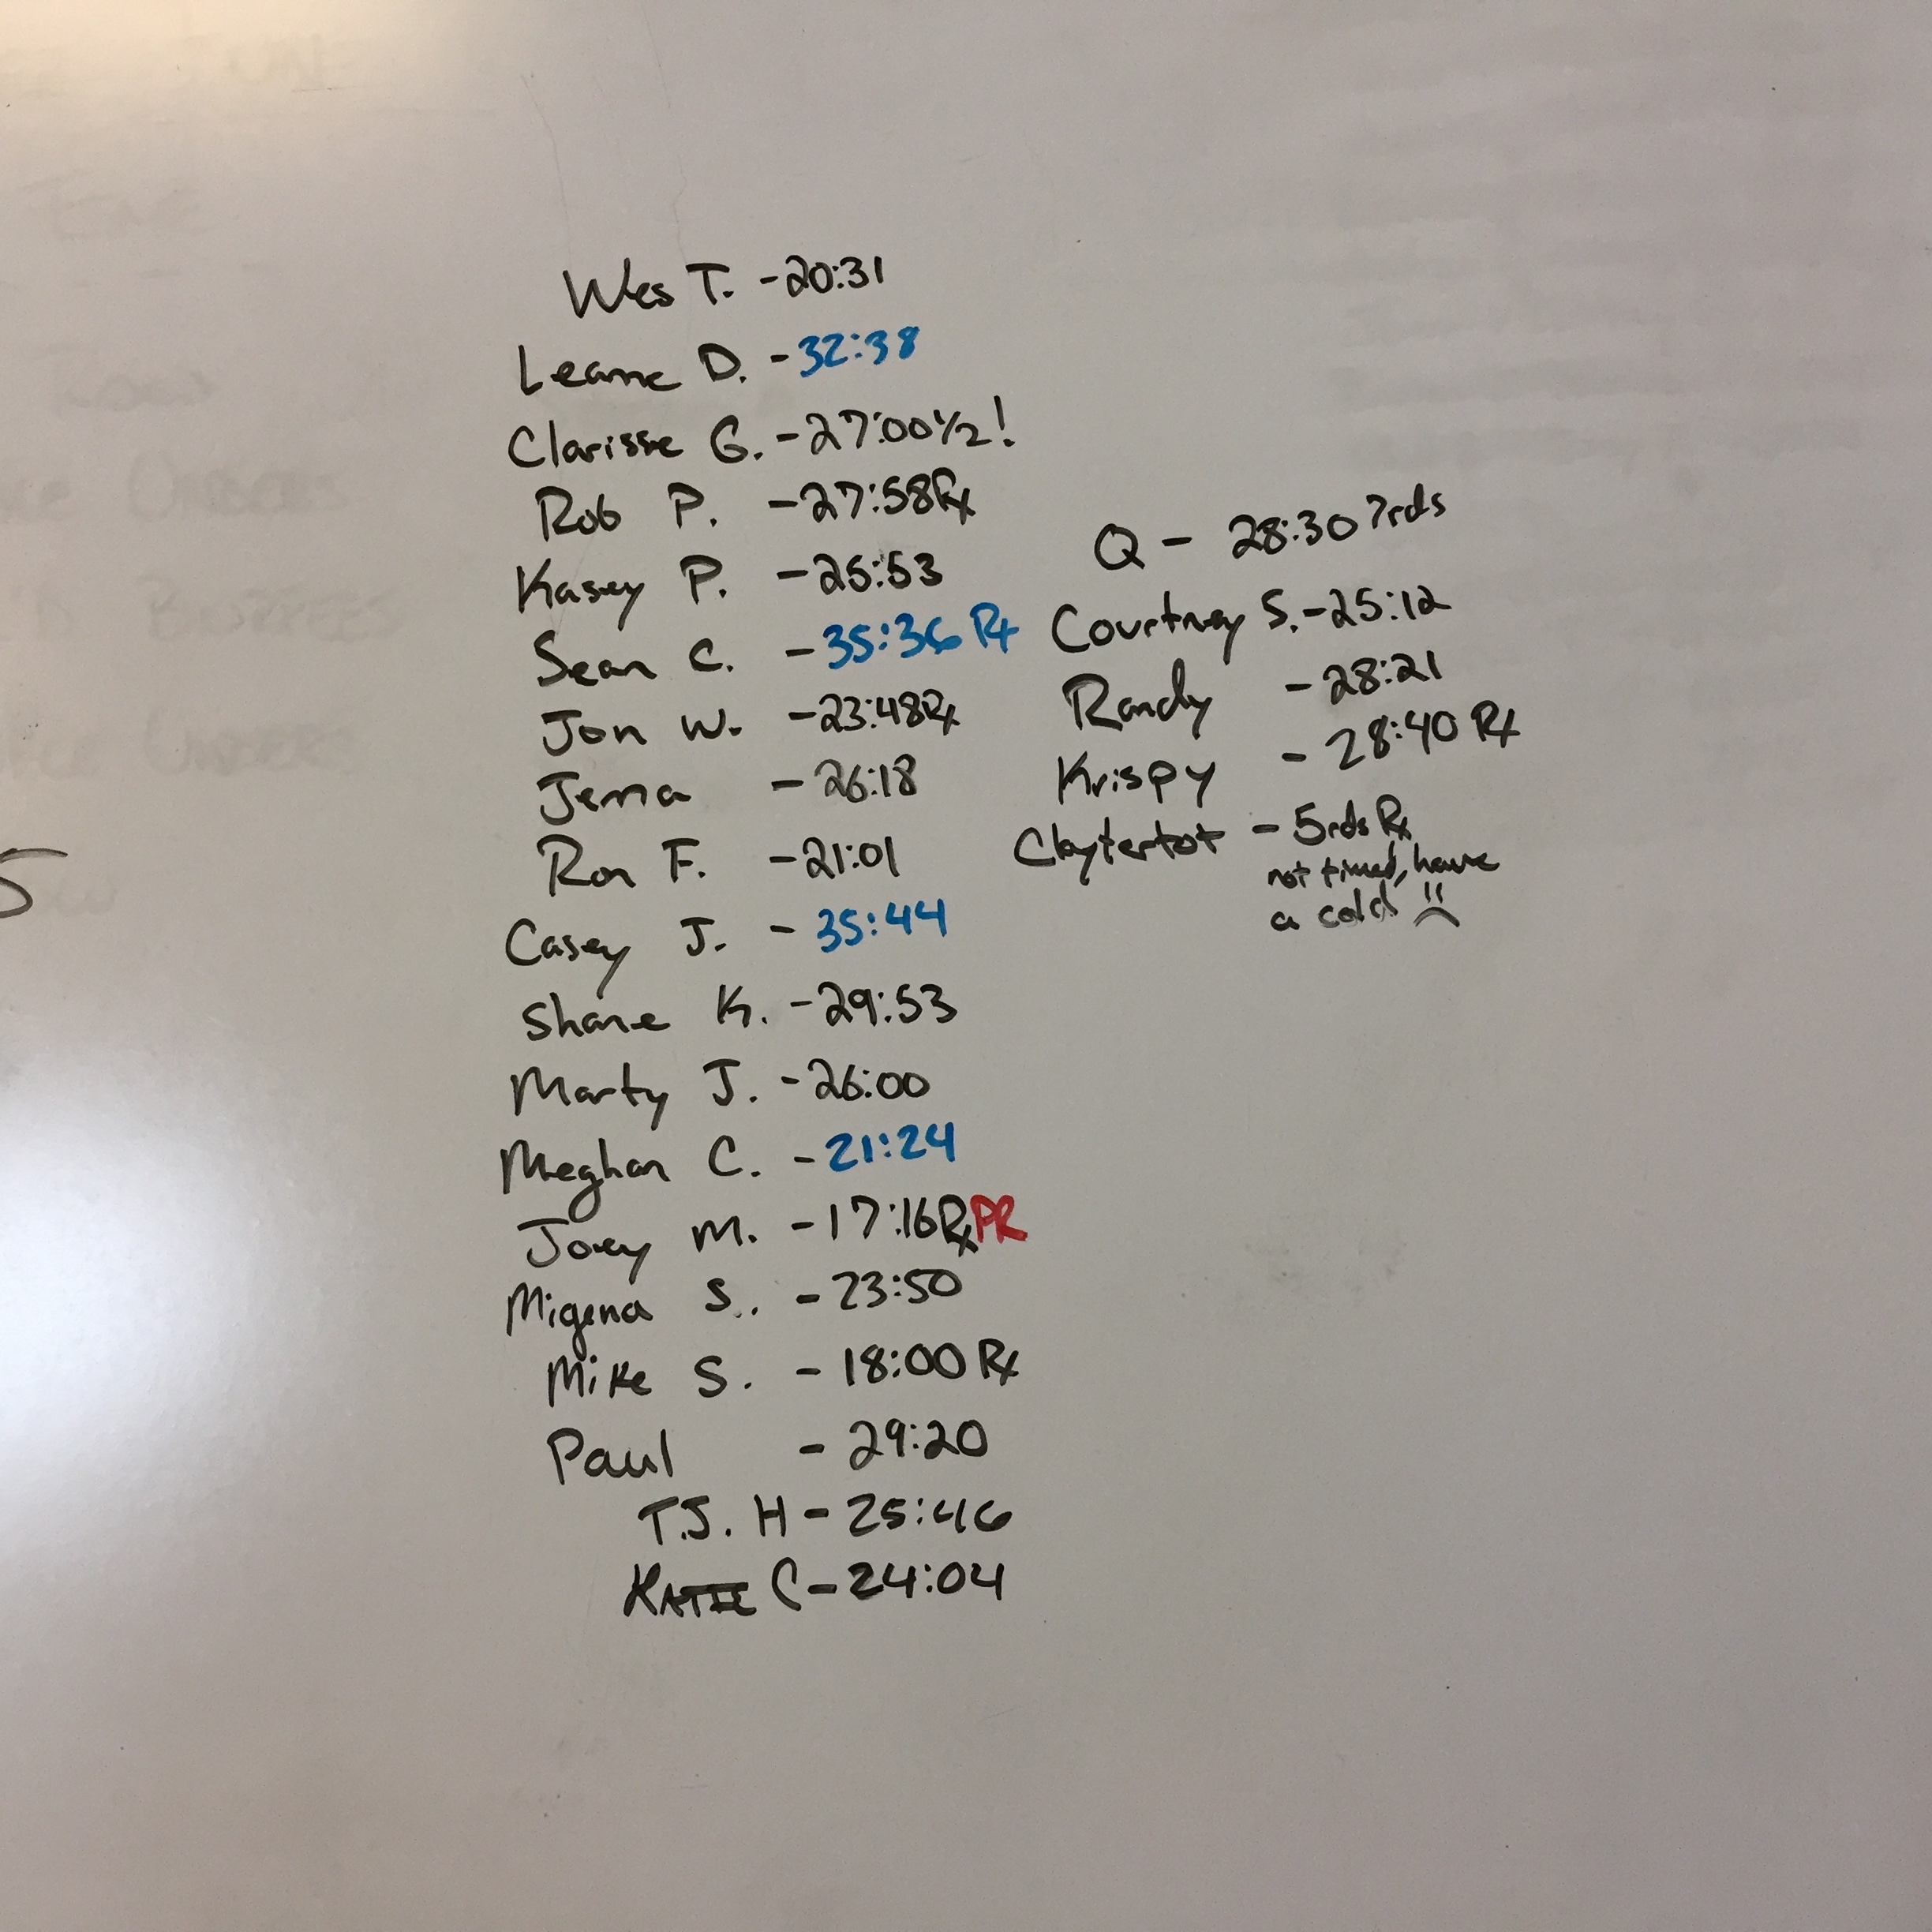 Wes T. - 20:31
Leanne D. - 32:38
Clarisse G. - 27:00 1/2!
Rob P. - 27:58 Rx
Kasey P. - 25:53
Sean C. - 35:36 Rx
Jon W. - 23:48 Rx
Jenna - 26:18
Ron F. - 21:01
Casey J. - 35:44
Shane K. - 29:53
Marty J. - 26:00
Meghan C. - 21:24
Joey M. - 17:16 Rx PR
Migena S. - 23:50
Mike S. - 18:00 Rx
Paul - 29:20
T.J. H - 25:46
KATIE C - 24:04
Q - 28:30 7rds
Courtney S. - 25:12
Randy - 28:21
Krispy - 28:40 Rx
Claytertot - 5rds Rx
not timed, have
a cold